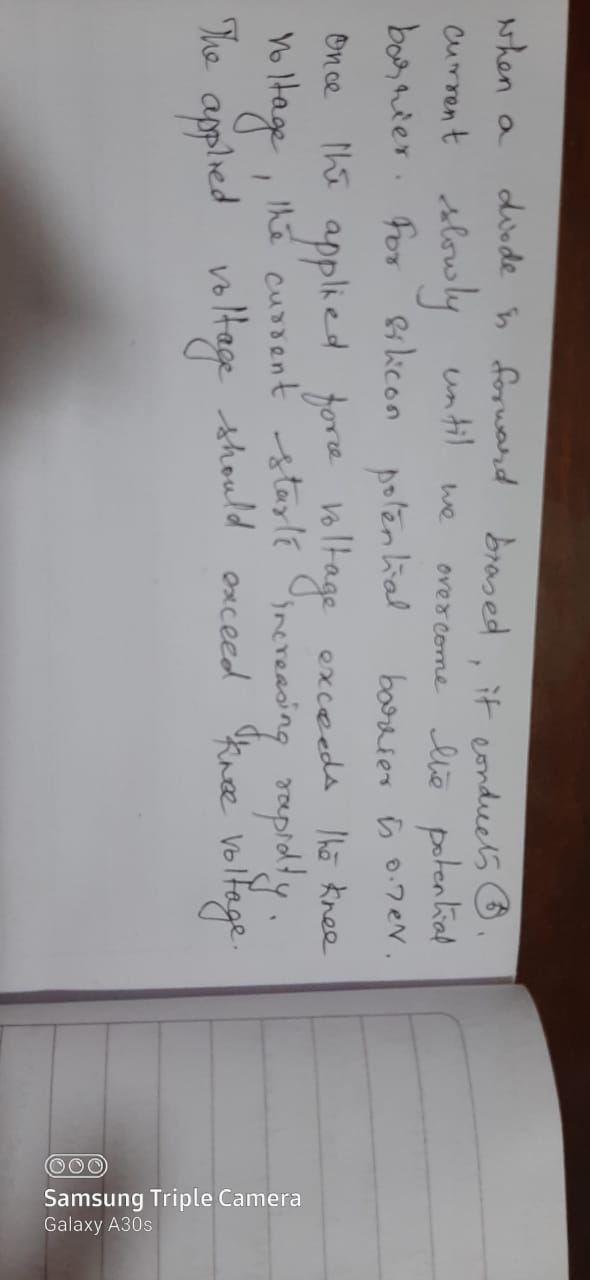 When a diode is forward biased, it conducts 6.
current slowly until we overcome the potential
barrier. For silicon potential barrier is 0.7 eV.
Once the applied force voltage exceeds the knee
voltage, the current starts increasing rapidly.
The applied voltage should exceed knee voltage.
Samsung Triple Camera
Galaxy A30s